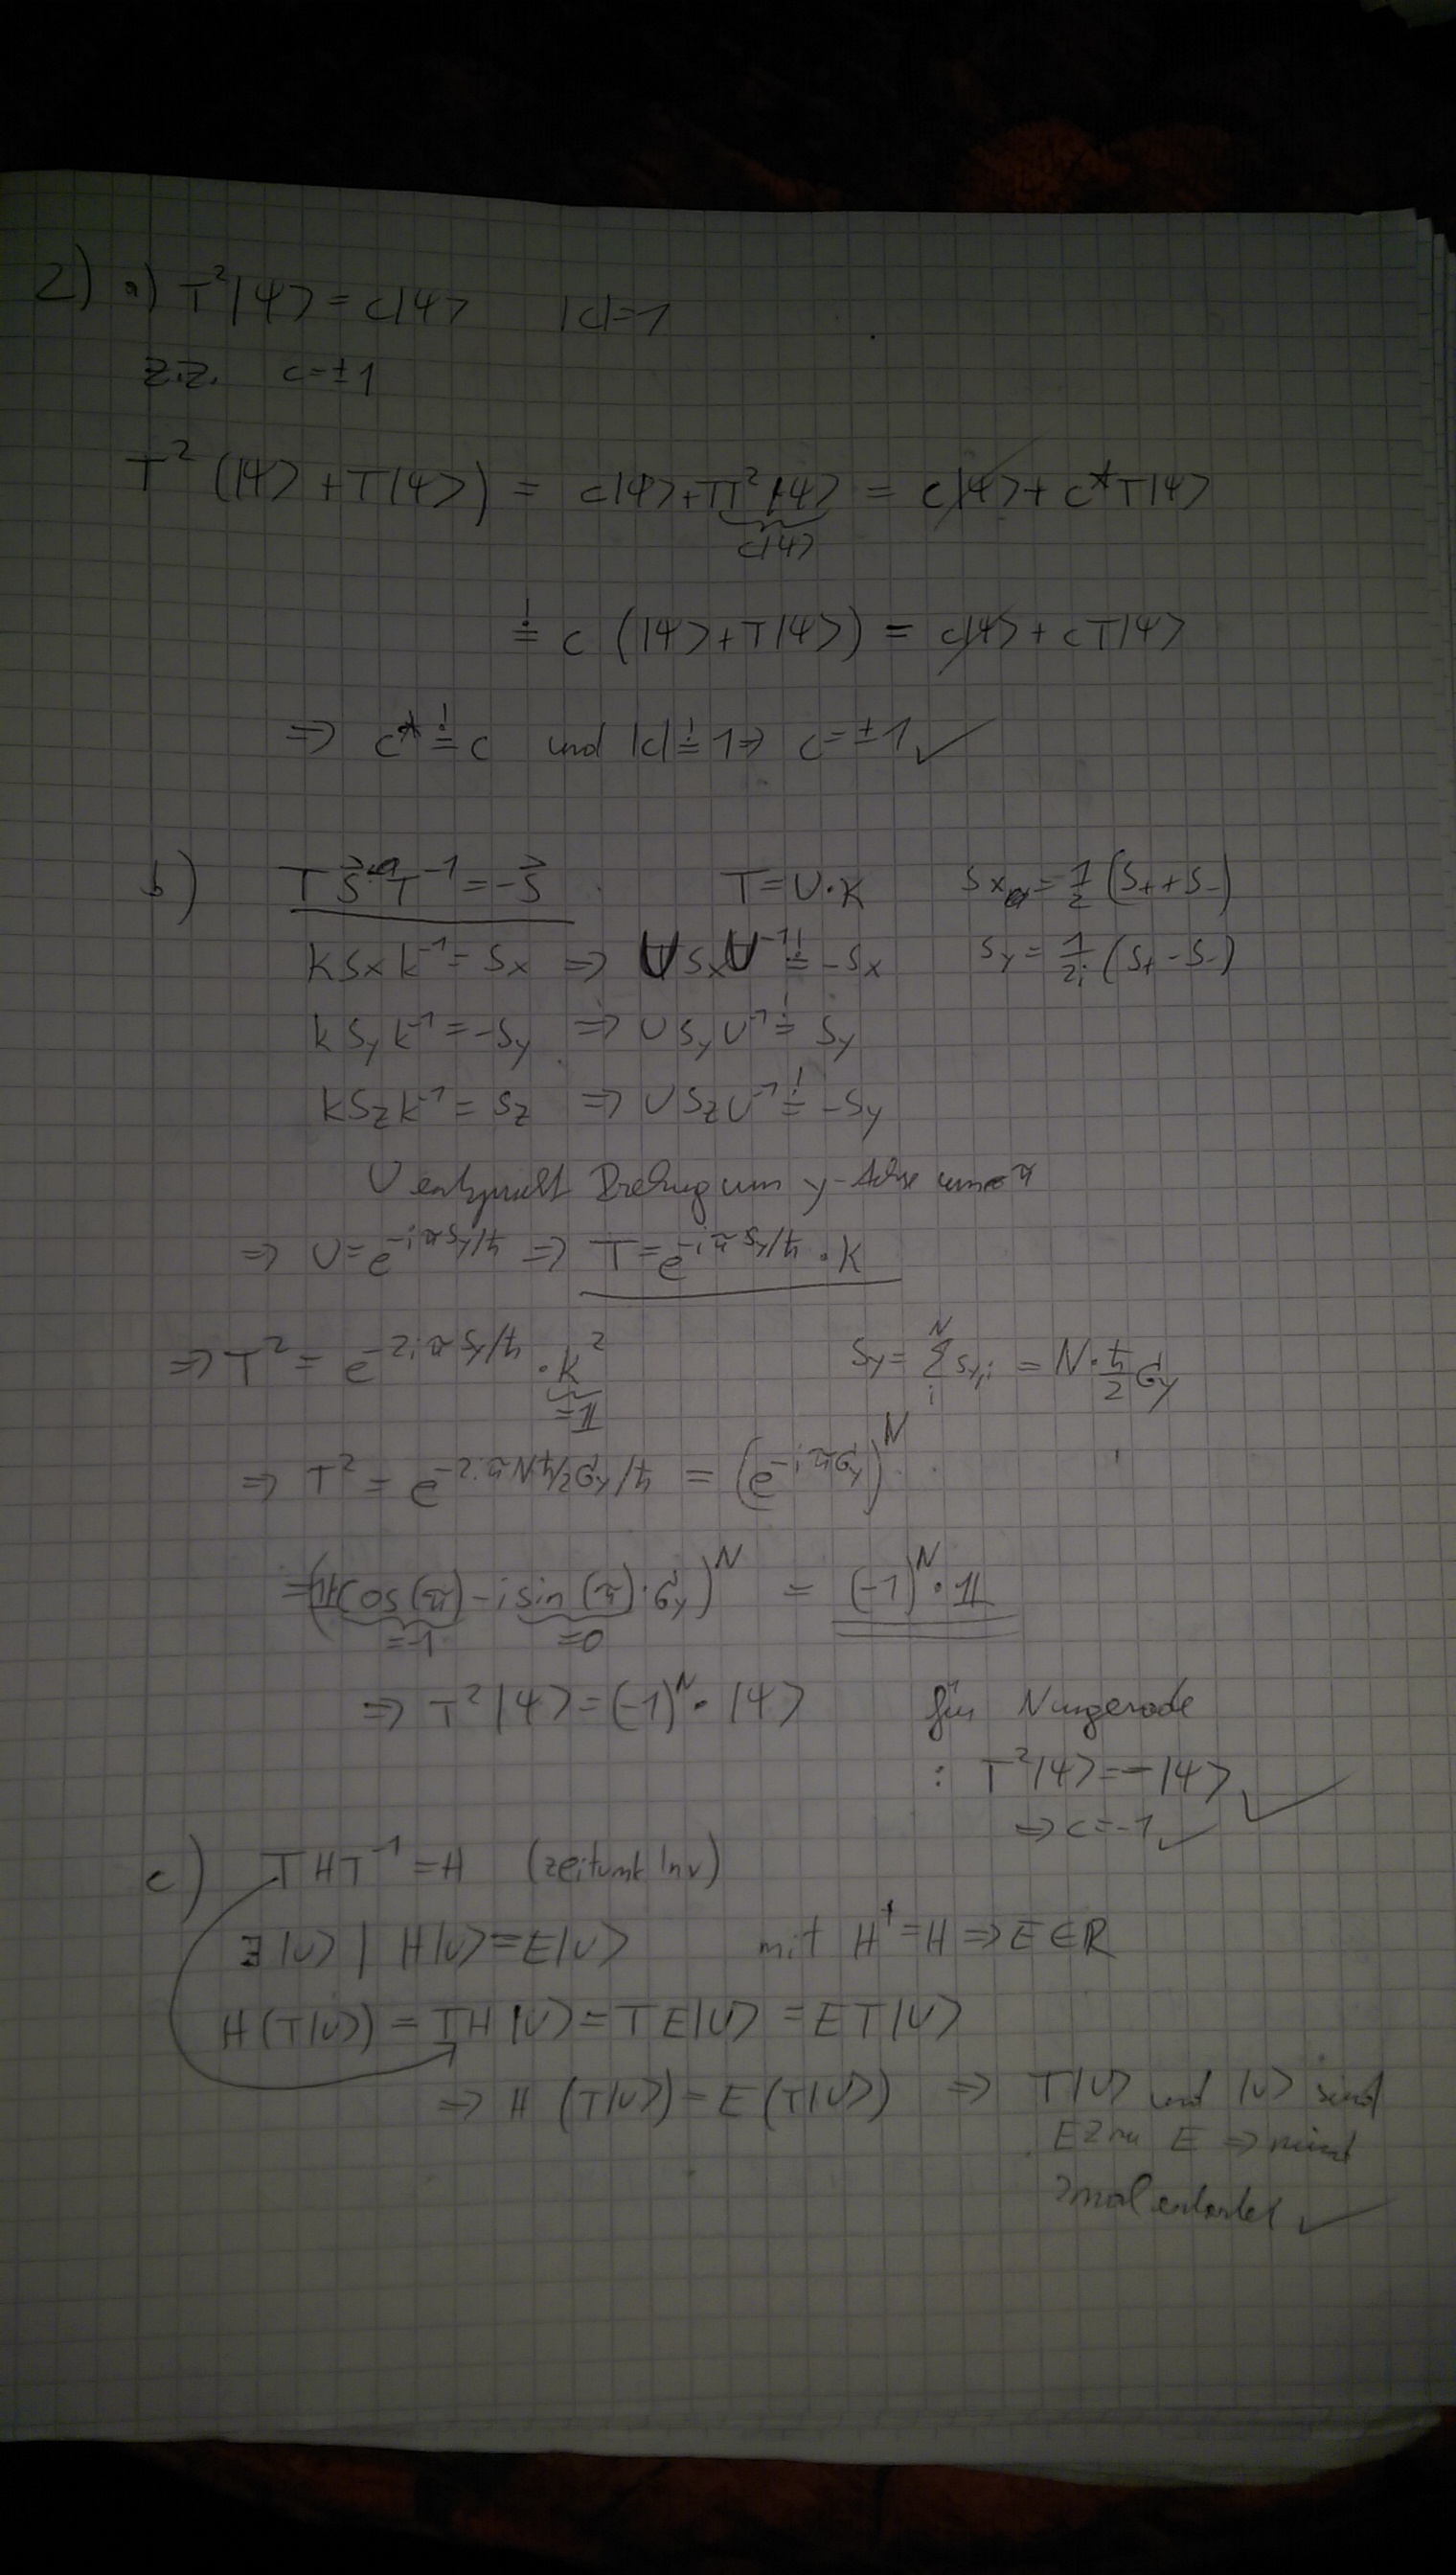 2) a) T²|ψ> = c|ψ> |c|=1
z.z. c=±1
T² (|ψ> + T|ψ>) = c|ψ> + TT²|ψ> = c|ψ> + c* T|ψ>
c|ψ>
!= c (|ψ> + T|ψ>) = c|ψ> + cT|ψ>
⇒ c* != c und |c| != 1 ⇒ c=±1 ✓
b) T S⃗ T⁻¹ = -S⃗ T=U·K Sx = 1/2 (S₊+S₋)
K Sx K⁻¹ = Sx ⇒ U Sx U⁻¹ != -Sx Sy = 1/2i (S₊-S₋)
K Sy K⁻¹ = -Sy ⇒ U Sy U⁻¹ != Sy
K Sz K⁻¹ = Sz ⇒ U Sz U⁻¹ != -Sy
U entspricht Drehung um y-Achse um π
⇒ U = e^{-iπSy/ħ} ⇒ T = e^{-iπSy/ħ} · K
⇒ T² = e^{-2iπSy/ħ} · K² Sy = Σ_i^N Sy,i = N · ħ/2 σy
=𝟙
⇒ T² = e^{-2iπNħ/2σy/ħ} = (e^{-iπσy})^N
= (𝟙cos(π) - i sin(π)·σy)^N = (-1)^N · 𝟙
=-1 =0
⇒ T²|ψ> = (-1)^N · |ψ> für N ungerade
: T²|ψ> = -|ψ> ✓
⇒ c=-1 ✓
c) THT⁻¹ = H (zeitumk Inv)
∃|v> | H|v> = E|v> mit H† = H ⇒ E∈R
H(T|v>) = TH|v> = TE|v> = ET|v>
⇒ H (T|v>) = E (T|v>) ⇒ T|v> und |v> sind
EZ zu E ⇒ mind
2mal entartet ✓